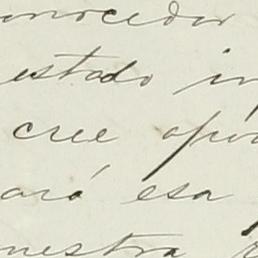 conocedor
estado in
cree opo
ará esa
nuestra